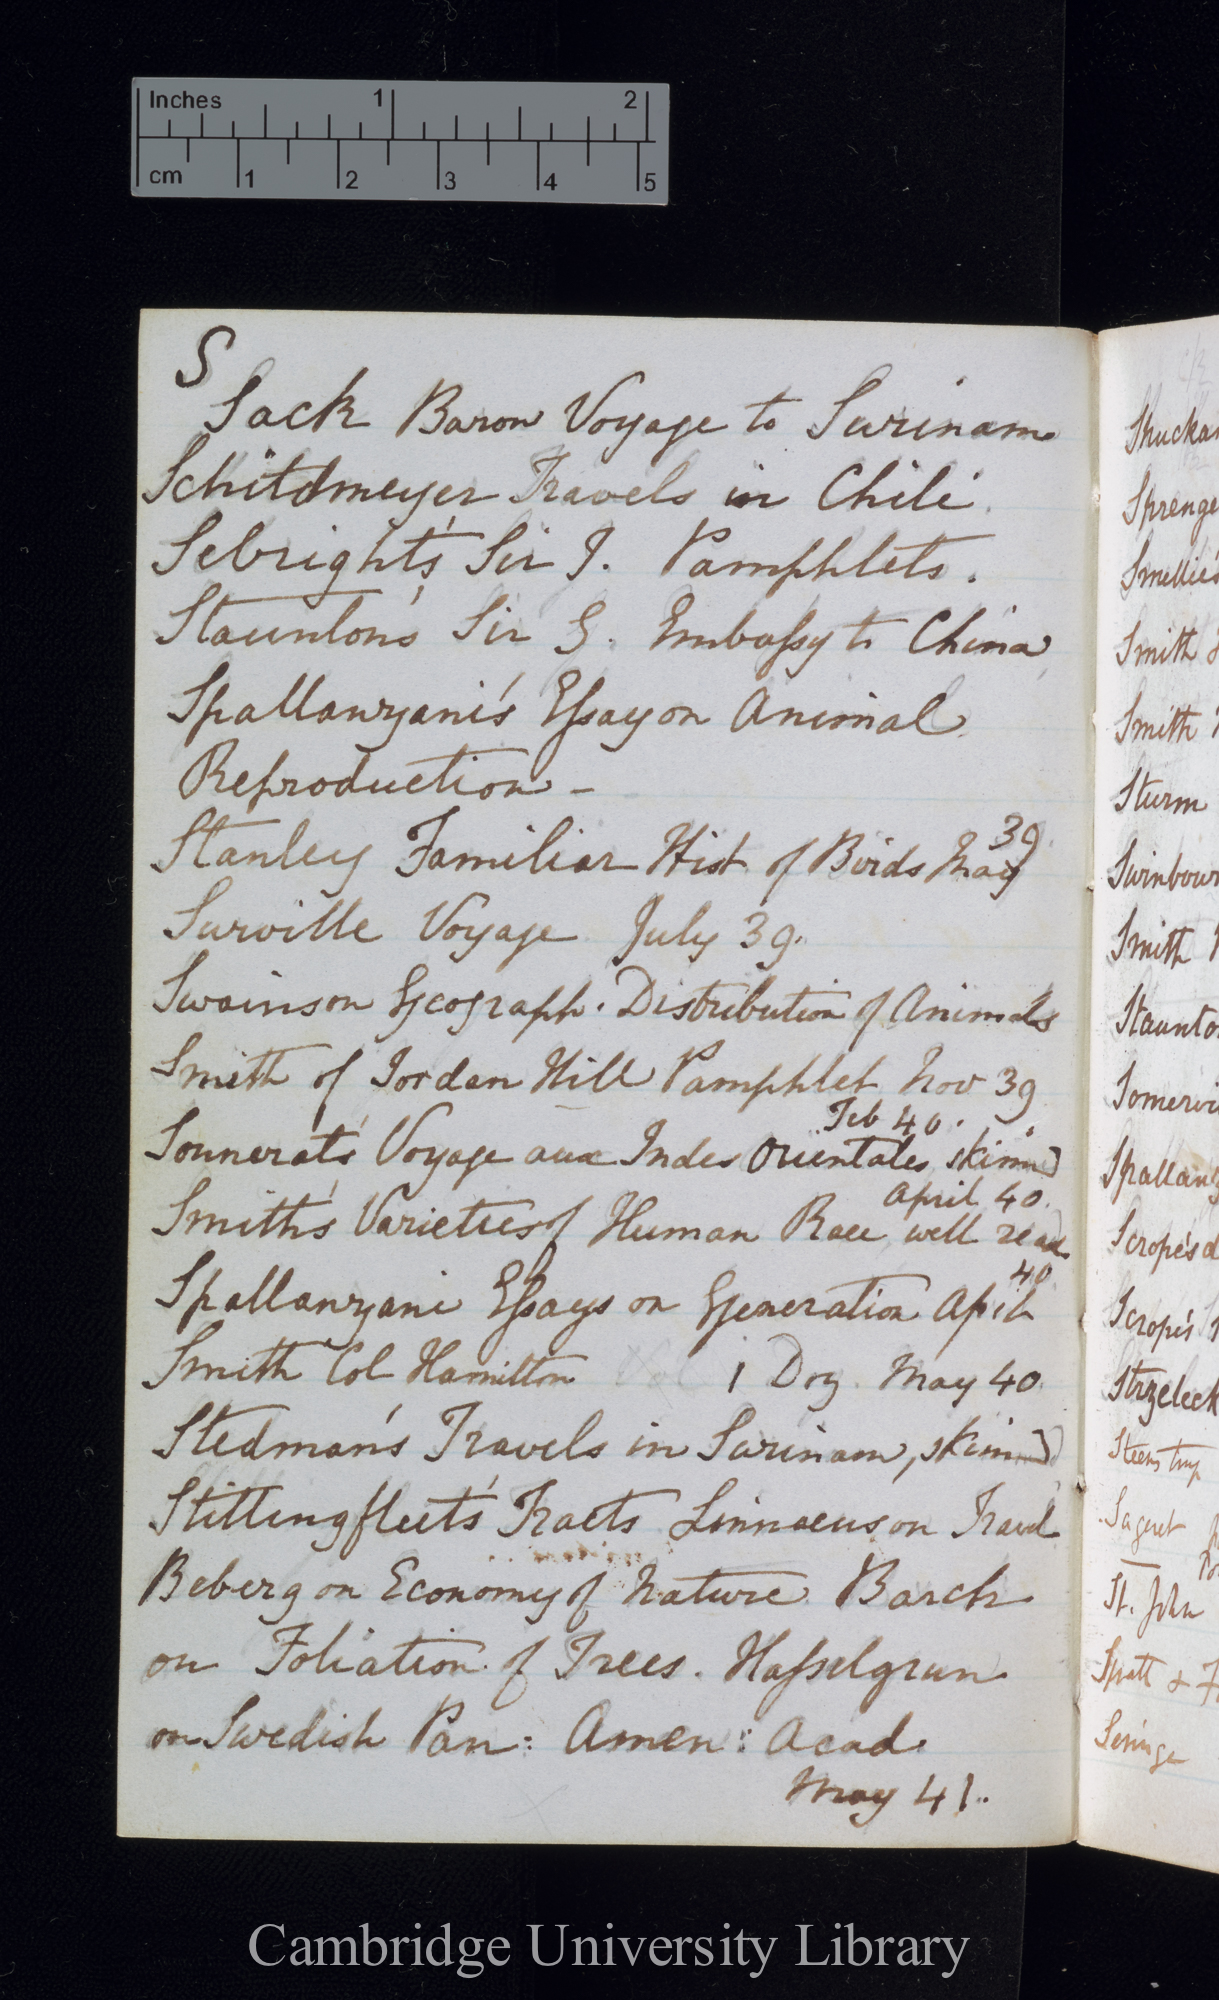 Inches 1 2
cm 1 2 3 4 5
S
Sack Baron Voyage to Surinam
Schitdmeyer Travels in Chili
Sebright's Sir J. Pamphlets.
Staunton's Sir G. Embassy to China
Spallanzani's Essay on Animal
Reproduction –
39
Stanley Familiar Hist of Birds May
Surville Voyage July 39.
Swainson Geograph. Distribution of Animals
Smith of Jordan Hill Pamphlet Nov 39
Feb 40.
Sonnerat's Voyage aux Indes Orientales skimd
April 40.
Smith's Varieties of Human Race well read
40
Spallanzani Essays on Generation April
Smith Col Hamilton Vol 1 Dog. May 40.
Stedman's Travels in Surinam, skimd
Stittingfleet's Tracts Linnaeus on Travel
Beberg on Economy of Nature Barch
on Foliation of Trees. Hasselgrun
on Swedish Pan: Amen: Acad.
May 41.
Shuckar
Sprenge
Smellie's
Smith
Smith
Sturm
Swinbour
Smith
Staunto
Somervi
Spallanz
Scrope's d
Scrope's
Strzeleck
Steenstrup
Sageret
St. John
Spratt & F
Seringe
Cambridge University Library